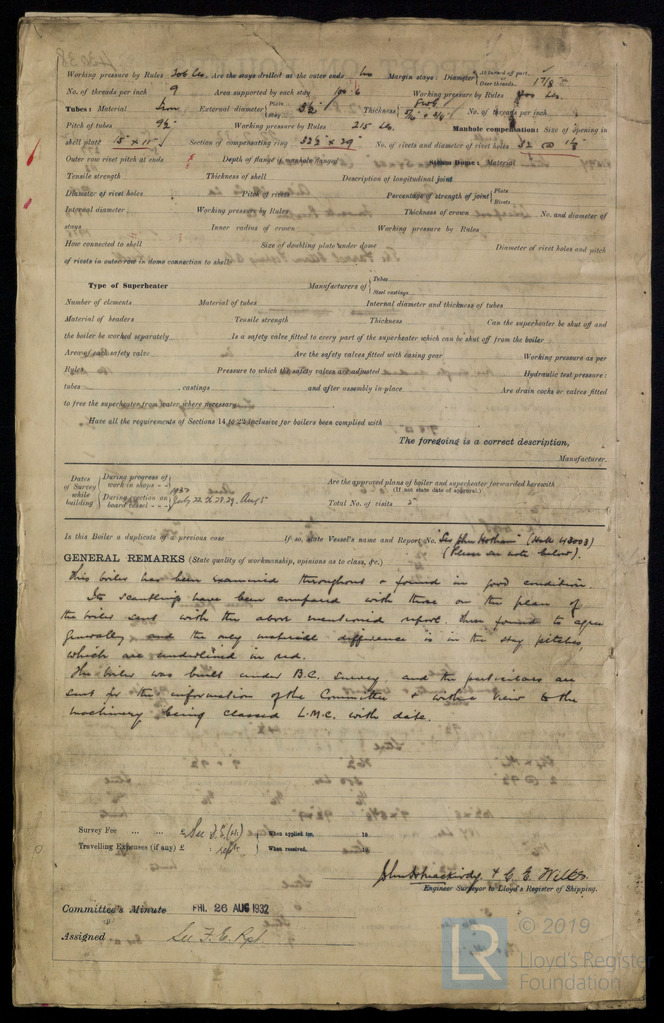 Working pressure by Rules 206 Lbs. Are the stays drilled at the outer ends No Margin stays: Diameter { At turned off part, or Over threads 1 7/8"
No. of threads per inch 9 Area supported by each stay Working pressure by Rules 200 Lbs.
Tubes: Material Iron External diameter { Plain Stay 3½" Thickness { 8 WG 5/16" & 3/8" No. of threads per inch
Pitch of tubes 9½" Working pressure by Rules 215 Lbs. Manhole compensation: Size of opening in
shell plate 15" x 11" Section of compensating ring 32½" x 29" No. of rivets and diameter of rivet holes 32 @ 1⅛"
Outer row rivet pitch at ends Depth of flange if manhole flanged Steam Dome: Material
Tensile strength Thickness of shell Description of longitudinal joint
Diameter of rivet holes Pitch of rivets Percentage of strength of joint { Plate Rivets
Internal diameter Working pressure by Rules Thickness of crown No. and diameter of
stays Inner radius of crown Working pressure by Rules
How connected to shell Size of doubling plate under dome Diameter of rivet holes and pitch
of rivets in outer row in dome connection to shell
Type of Superheater Manufacturers of { Tubes Steel castings
Number of elements Material of tubes Internal diameter and thickness of tubes
Material of headers Tensile strength Thickness Can the superheater be shut off and
the boiler be worked separately Is a safety valve fitted to every part of the superheater which can be shut off from the boiler
Area of each safety valve Are the safety valves fitted with easing gear Working pressure as per
Rules Pressure to which the safety valves are adjusted Hydraulic test pressure:
tubes , castings and after assembly in place Are drain cocks or valves fitted
to free the superheater from water where necessary
Have all the requirements of Sections 14 to 22 inclusive for boilers been complied with
The foregoing is a correct description,
Manufacturer.
Dates of Survey while building { During progress of work in shops - -
During erection on board vessel - - - 1932 July 22 26 27 29. Aug 5
Are the approved plans of boiler and superheater forwarded herewith
(If not state date of approval.)
Total No. of visits 5
Is this Boiler a duplicate of a previous case If so, state Vessel's name and Report No. "Sir John Hotham" (Hull 43003)
(Please see note below).
GENERAL REMARKS (State quality of workmanship, opinions as to class, &c.)
This boiler has been examined throughout & found in good condition.
Its scantlings have been compared with those on the plan of
the boiler sent with the above mentioned report & been found to agree
generally and the only material difference is in the stay pitches,
which are underlined in red.
This boiler was built under B.C. survey and the particulars are
sent for the information of the Committee & with a view to the
machinery being classed L.M.C. with date.
Survey Fee ... ... £ See F.E. (s) When applied for, 19
Travelling Expenses (if any) £ : rept. When received, 19
& C. E. Wells
Engineer Surveyor to Lloyd's Register of Shipping.
Committee's Minute FRI. 26 AUG 1932
Assigned See F. E. Rpt.
© 2019
LR Lloyd's Register
Foundation